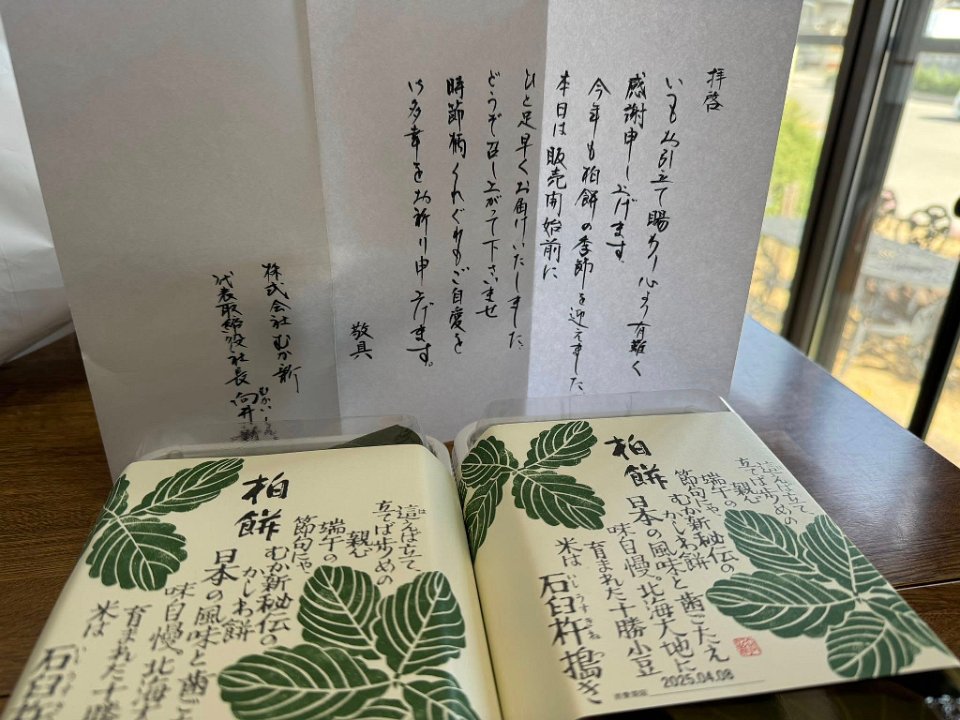 拝啓
いつもお引立て賜わり心より有難く
感謝申し上げます。
今年も柏餅の季節を迎えました
本日は販売開始前に
ひと足早くお届けいたしました。
どうぞ召し上がって下さいませ
時節柄くれぐれもご自愛を
ご多幸をお祈り申し上げます。
敬具
株式会社むか新
代表取締役社長 向井
むかい
柏餅
這えば立て
立てば歩めの
親心
端午の
節句にゃ
むか新秘伝の
かしわ餅
日本の風味と歯ご
味自慢、北海
育まれた十勝
米は
石臼杵
柏餅
這えば立て
立てば歩めの
親心
端午の
節句にゃ
むか新秘伝の
かしわ餅
日本の風味と歯ごたえ
味自慢。北海大地に
育まれた十勝小豆
米は
石臼杵搗き
いしうすきね
2025.04.08